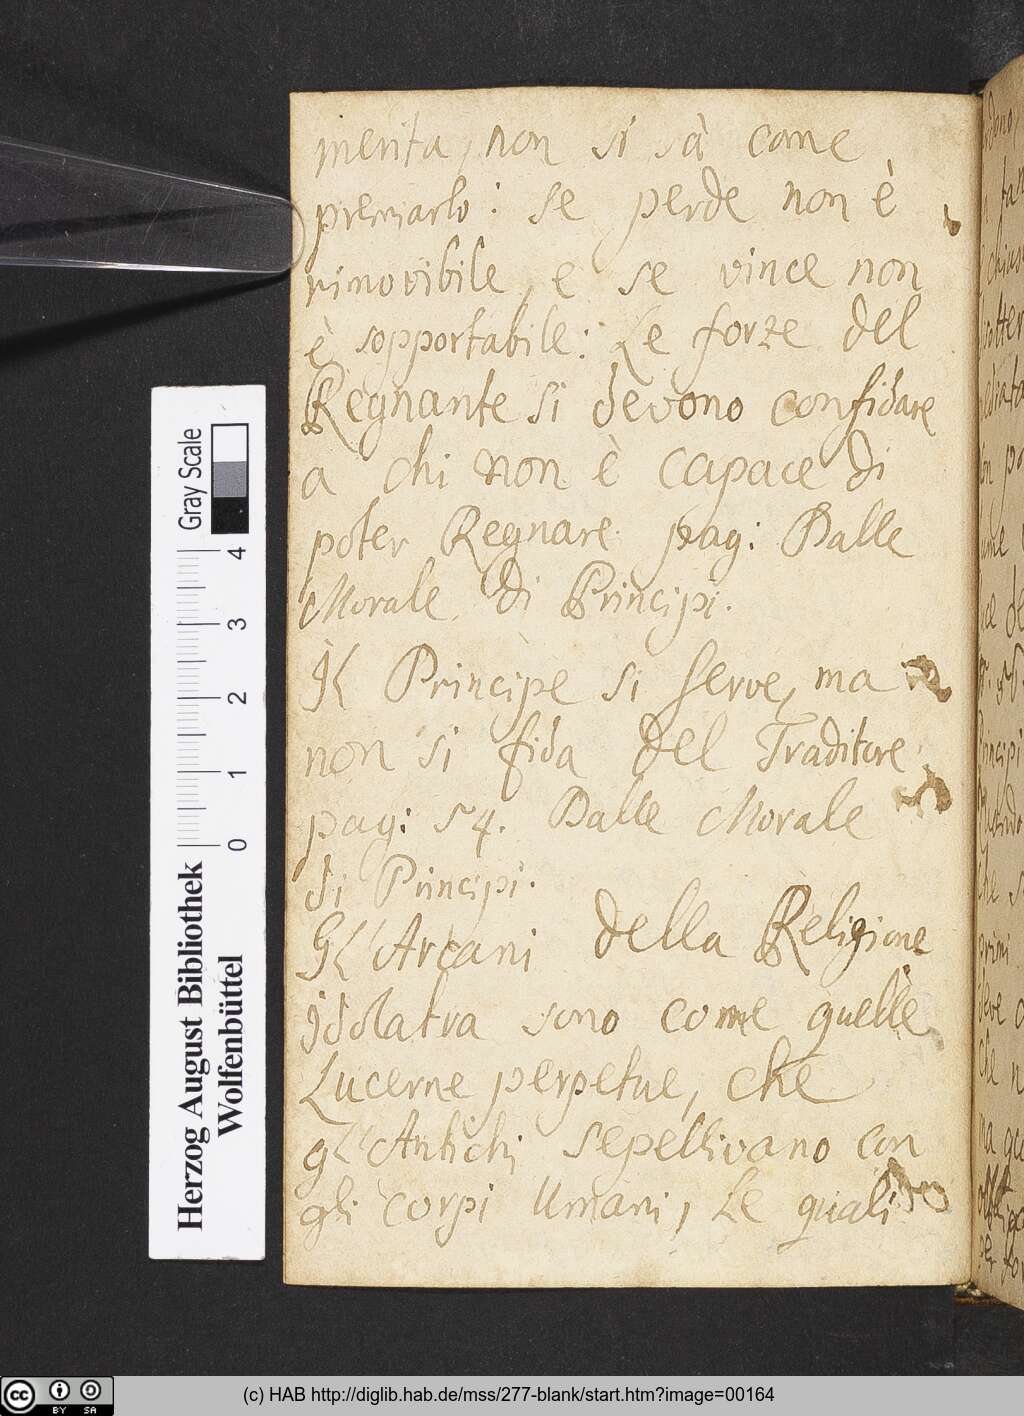 merita, non si sà come
premiarlo: se perde non è
rimovibile, e se vince non
è sopportabile: Le forze del
Regnante si devono confidare
a chi non è capace di
poter Regnare. pag: Dalle
Morale di Principi.
Il Principe si serve, ma
non si fida del Traditore.
pag: 54. Dalle Morale
di Principi.
Gl'Arcani della Religione
Idolatra sono come quelle
Lucerne perpetue, che
gl'Antichi sepellivano con
gli corpi Umani, Le quali
Gray Scale
0 1 2 3 4
Herzog August Bibliothek
Wolfenbüttel
cc BY SA
(c) HAB http://diglib.hab.de/mss/277-blank/start.htm?image=00164